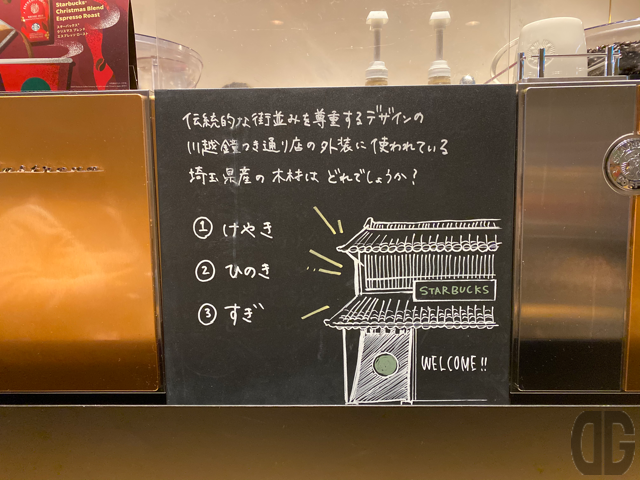 Starbucks®
Christmas Blend
Espresso Roast
スターバックス®
クリスマス ブレンド
エスプレッソ ロースト
伝統的な街並みを尊重するデザインの
川越鐘つき通り店の外装に使われている
埼玉県産の木材は どれでしょうか?
① けやき
② ひのき
③ すぎ
STARBUCKS
WELCOME!!
DG